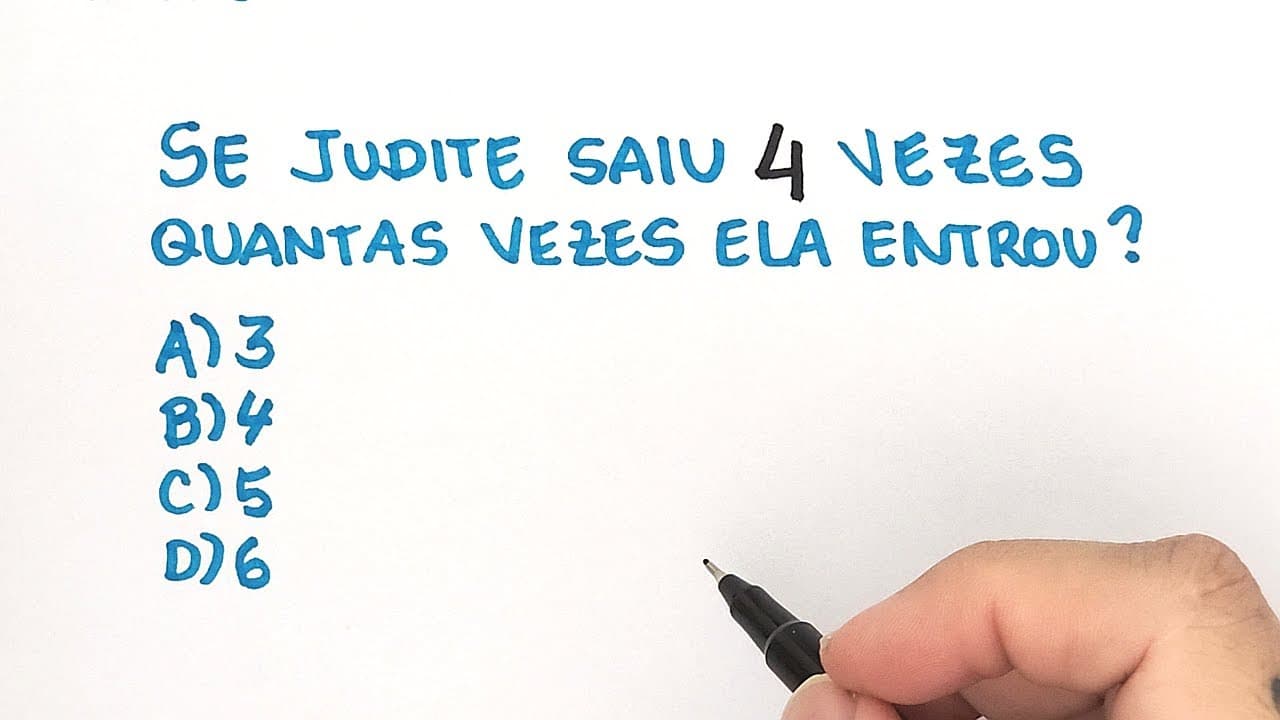 SE JUDITE SAIU 4 VEZES
QUANTAS VEZES ELA ENTROU?
A) 3
B) 4
C) 5
D) 6